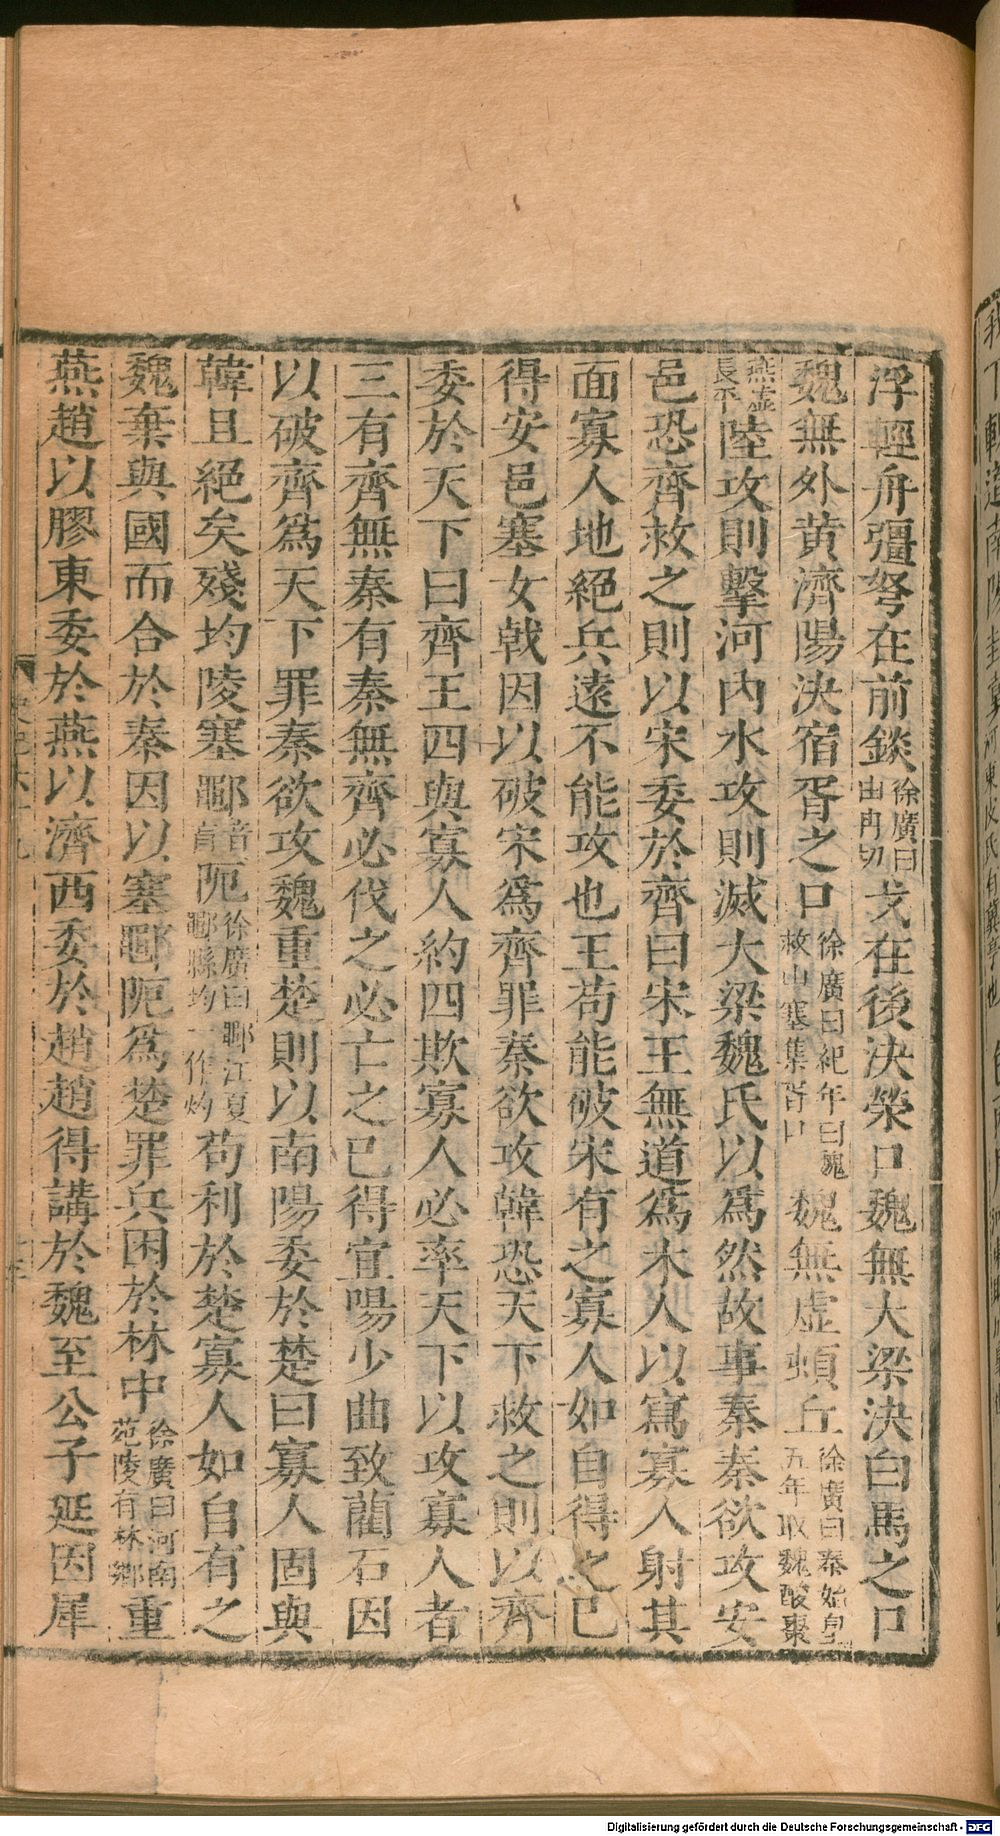 浮輕舟彊弩在前錟徐廣曰由冉切戈在後決榮口魏無大梁決白馬之口
魏無外黄濟陽決宿胥之口徐廣曰紀年曰魏救山塞集胥口魏無虚頓丘徐廣曰秦始皇五年取魏酸棗
燕虚長平陸攻則擊河内水攻則滅大梁魏氏以爲然故事秦秦欲攻安
邑恐齊救之則以宋委於齊曰宋王無道爲木人以寫寡人射其
面寡人地絕兵遠不能攻也王苟能破宋有之寡人如自得之已
得安邑塞女戟因以破宋爲齊罪秦欲攻韓恐天下救之則以齊
委於天下曰齊王四與寡人約四欺寡人必率天下以攻寡人者
三有齊無秦有秦無齊必伐之必亡之已得宜陽少曲致藺石因
以破齊爲天下罪秦欲攻魏重楚則以南陽委於楚曰寡人固與
韓且絕矣殘均陵塞鄳音盲阨徐廣曰鄳江夏鄳縣均一作灼苟利於楚寡人如自有之
魏棄與國而合於秦因以塞鄳阨爲楚罪兵困於林中徐廣曰河南苑陵有林鄉重
燕趙以膠東委於燕以濟西委於趙趙得講於魏至公子延因犀
Digitalisierung gefördert durch die Deutsche Forschungsgemeinschaft - DFG